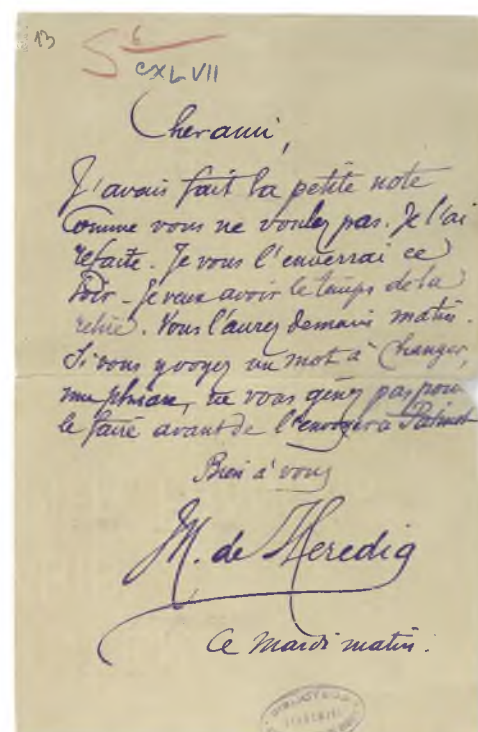 13
6
CXLVII
Cher ami,
J'avais fait la petite note
comme vous ne voulez pas. Je l'ai
refaite. Je vous l'enverrai ce
soir - je veux avoir le temps de la
relire. Vous l'aurez demain matin.
Si vous y voyez un mot à changer,
une phrase, ne vous gênez pas pour
le faire avant de l'envoyer à Patinot
Bien à vous
M. de Heredia
Ce mardi matin.